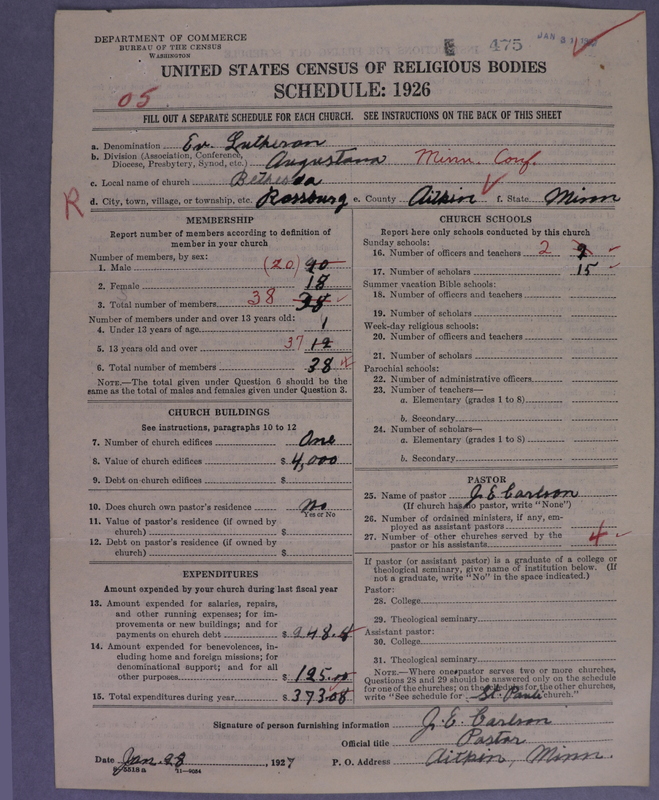 DEPARTMENT OF COMMERCE
BUREAU OF THE CENSUS
WASHINGTON
475
JAN 31
UNITED STATES CENSUS OF RELIGIOUS BODIES
SCHEDULE: 1926
05
FILL OUT A SEPARATE SCHEDULE FOR EACH CHURCH. SEE INSTRUCTIONS ON THE BACK OF THIS SHEET
a. Denomination Ev. Lutheran
b. Division (Association, Conference, Diocese, Presbytery, Synod, etc.) Augustana Minn. Conf.
c. Local name of church Bethesda
R
d. City, town, village, or township, etc. Rossburg e. County Aitkin f. State Minn
MEMBERSHIP
Report number of members according to definition of
member in your church
Number of members, by sex:
1. Male (20)
2. Female 18
3. Total number of members 38 38
Number of members under and over 13 years old:
4. Under 13 years of age 1
5. 13 years old and over 37
6. Total number of members 38
NOTE.—The total given under Question 6 should be
the same as the total of males and females given under Question 3.
CHURCH BUILDINGS
See instructions, paragraphs 10 to 12
7. Number of church edifices One
8. Value of church edifices $4,000
9. Debt on church edifices $
10. Does church own pastor's residence No
Yes or No
11. Value of pastor's residence (if owned by
church) $
12. Debt on pastor's residence (if owned by
church) $
EXPENDITURES
Amount expended by your church during last fiscal year
13. Amount expended for salaries, repairs,
and other running expenses; for im-
provements or new buildings; and for
payments on church debt $
14. Amount expended for benevolences, in-
cluding home and foreign missions; for
denominational support; and for all
other purposes $ 125.00
15. Total expenditures during year $ 373.08
CHURCH SCHOOLS
Report here only schools conducted by this church
Sunday schools:
16. Number of officers and teachers 2
17. Number of scholars 15
Summer vacation Bible schools:
18. Number of officers and teachers
19. Number of scholars
Week-day religious schools:
20. Number of officers and teachers
21. Number of scholars
Parochial schools:
22. Number of administrative officers
23. Number of teachers—
a. Elementary (grades 1 to 8)
b. Secondary
24. Number of scholars—
a. Elementary (grades 1 to 8)
b. Secondary
PASTOR
25. Name of pastor J. E. Carlson
(If church has no pastor, write "None")
26. Number of ordained ministers, if any, em-
ployed as assistant pastors
27. Number of other churches served by the
pastor or his assistants 4
If pastor (or assistant pastor) is a graduate of a college or
theological seminary, give name of institution below. (If
not a graduate, write "No" in the space indicated.)
Pastor:
28. College
29. Theological seminary
Assistant pastor:
30. College
31. Theological seminary
NOTE.—Where one pastor serves two or more churches,
Questions 28 and 29 should be answered only on the schedule
for one of the churches; on the schedules for the other churches,
write "See schedule for St. Pauli church."
Signature of person furnishing information J. E. Carlson
Official title Pastor
Date Jan. 28, 1927 P. O. Address Aitkin, Minn.
8-5518a 11-9034